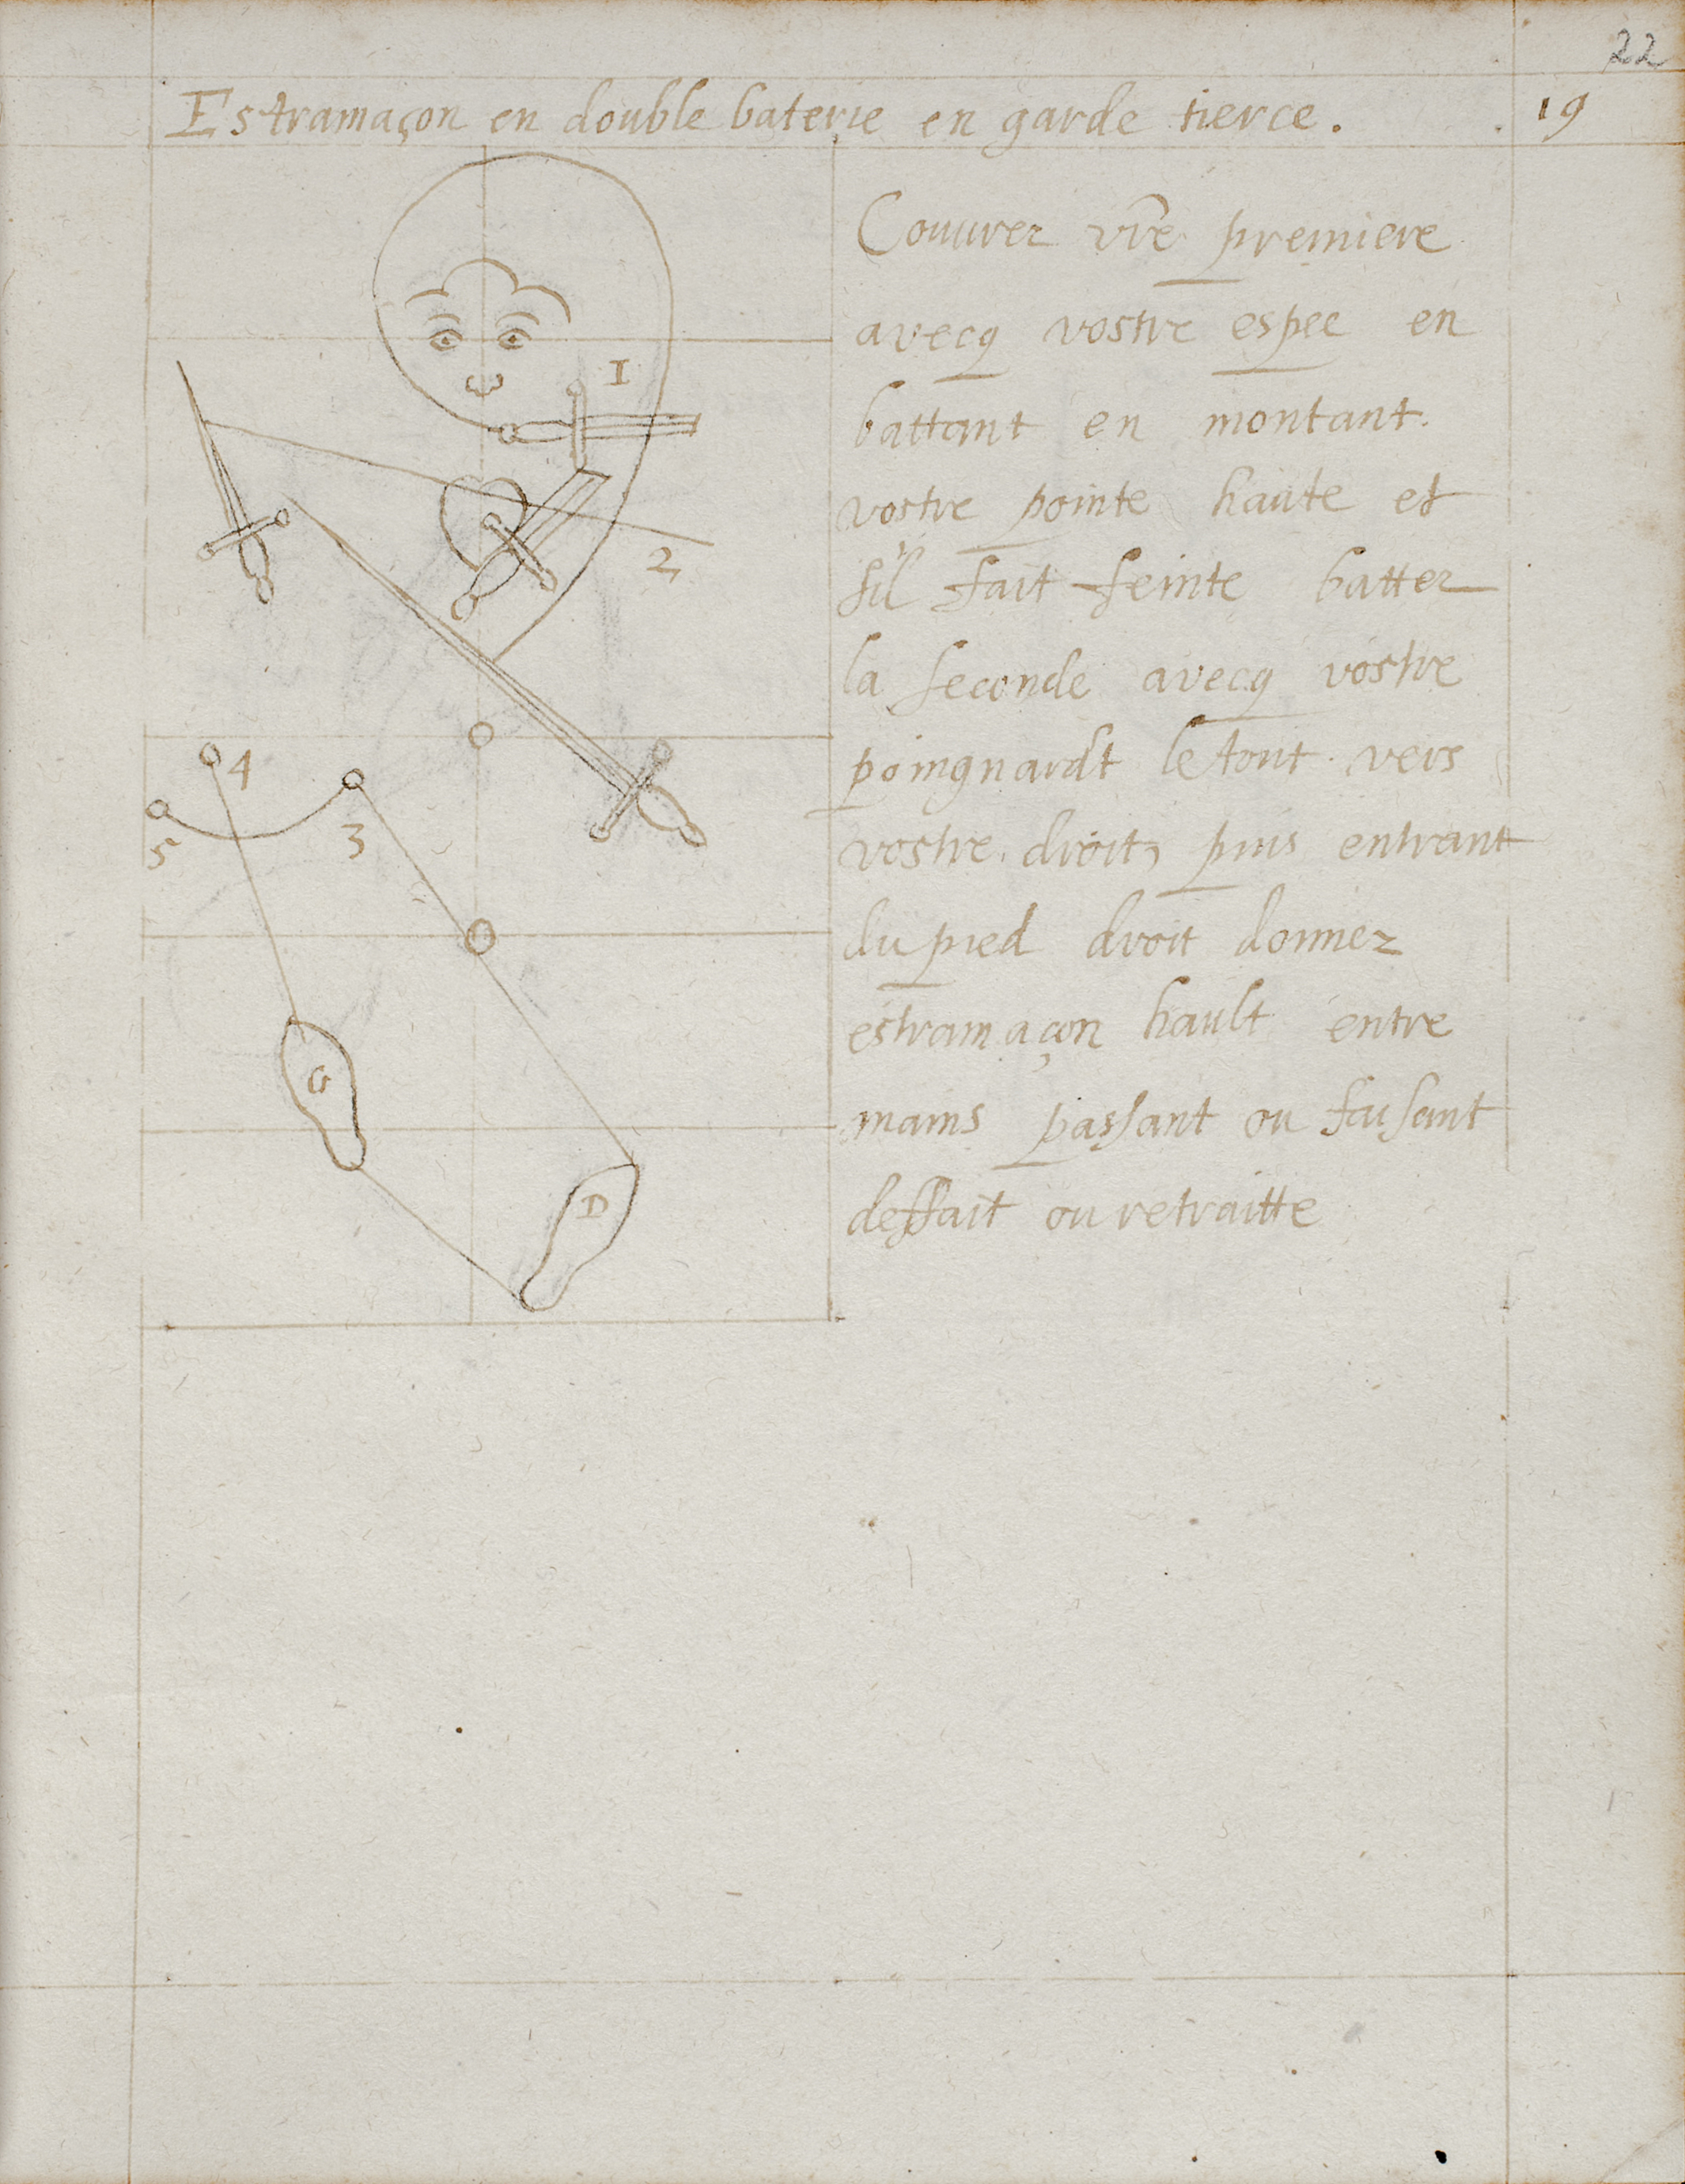 22
Estramaçon en double baterie en garde tierce.
19
Couurez vr̃e premiere
avecq vostre espee en
battant en montant.
vostre pointe haute et
sil fait feinte battez
la seconde avecq vostre
poingnardt le tout vers
vostre droit, puis entrant
du pied droit donnez
estramaçon hault entre
mains passant ou faisant
deffait ou retraitte
1
2
4
3
5
G
D